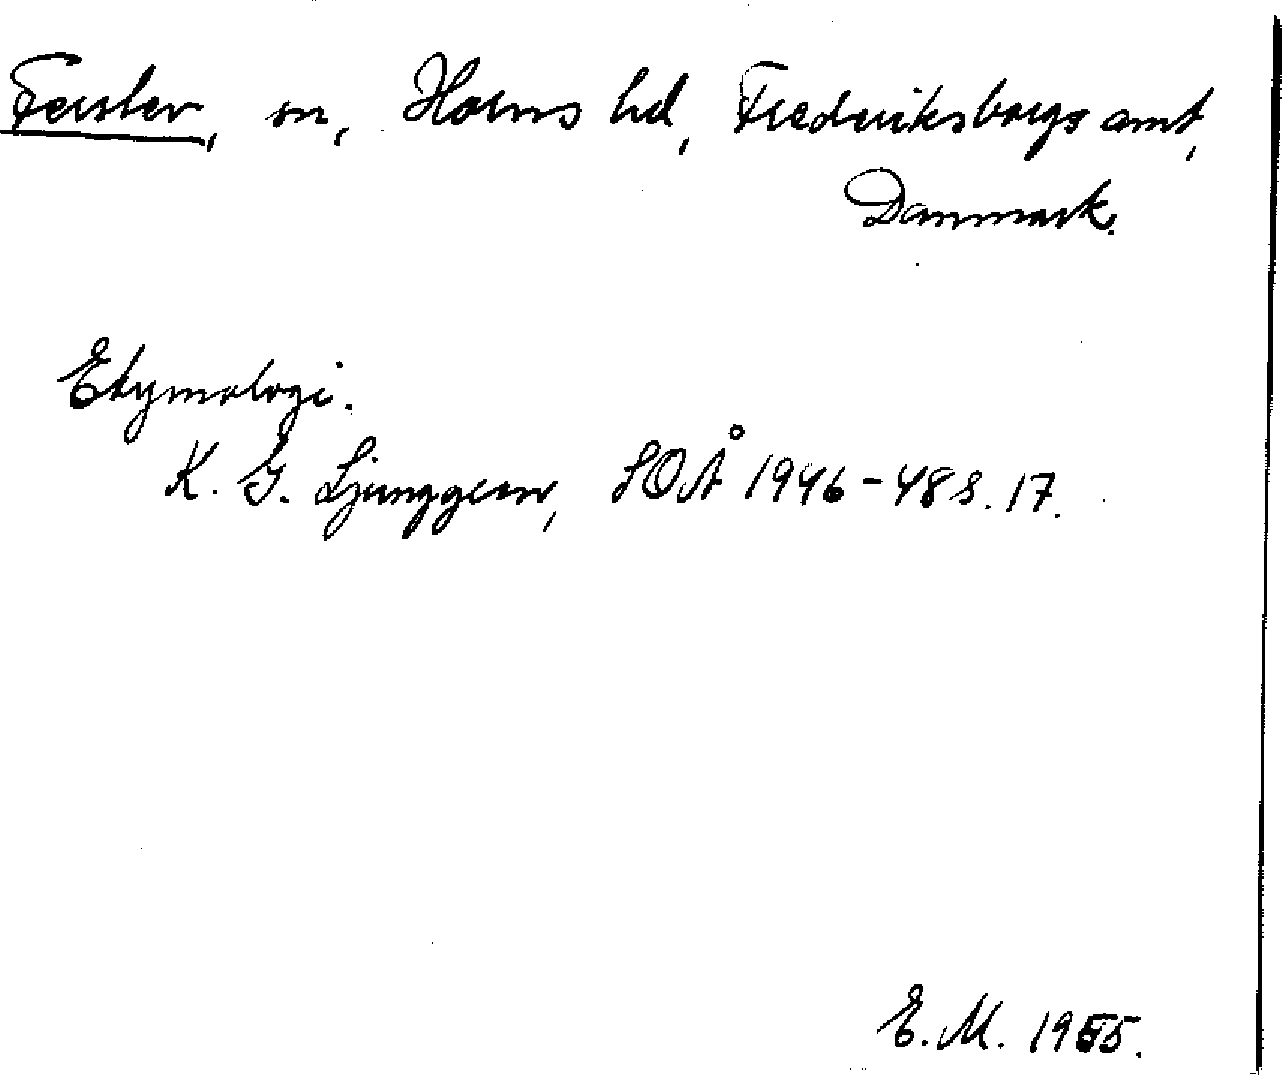 Ferslev, sn, Horns hd, Frederiksborgs amt,
Danmark.
Etymologi.
K. G. Ljunggren, SOÅ 1946-48 s. 17.
E. M. 1955.